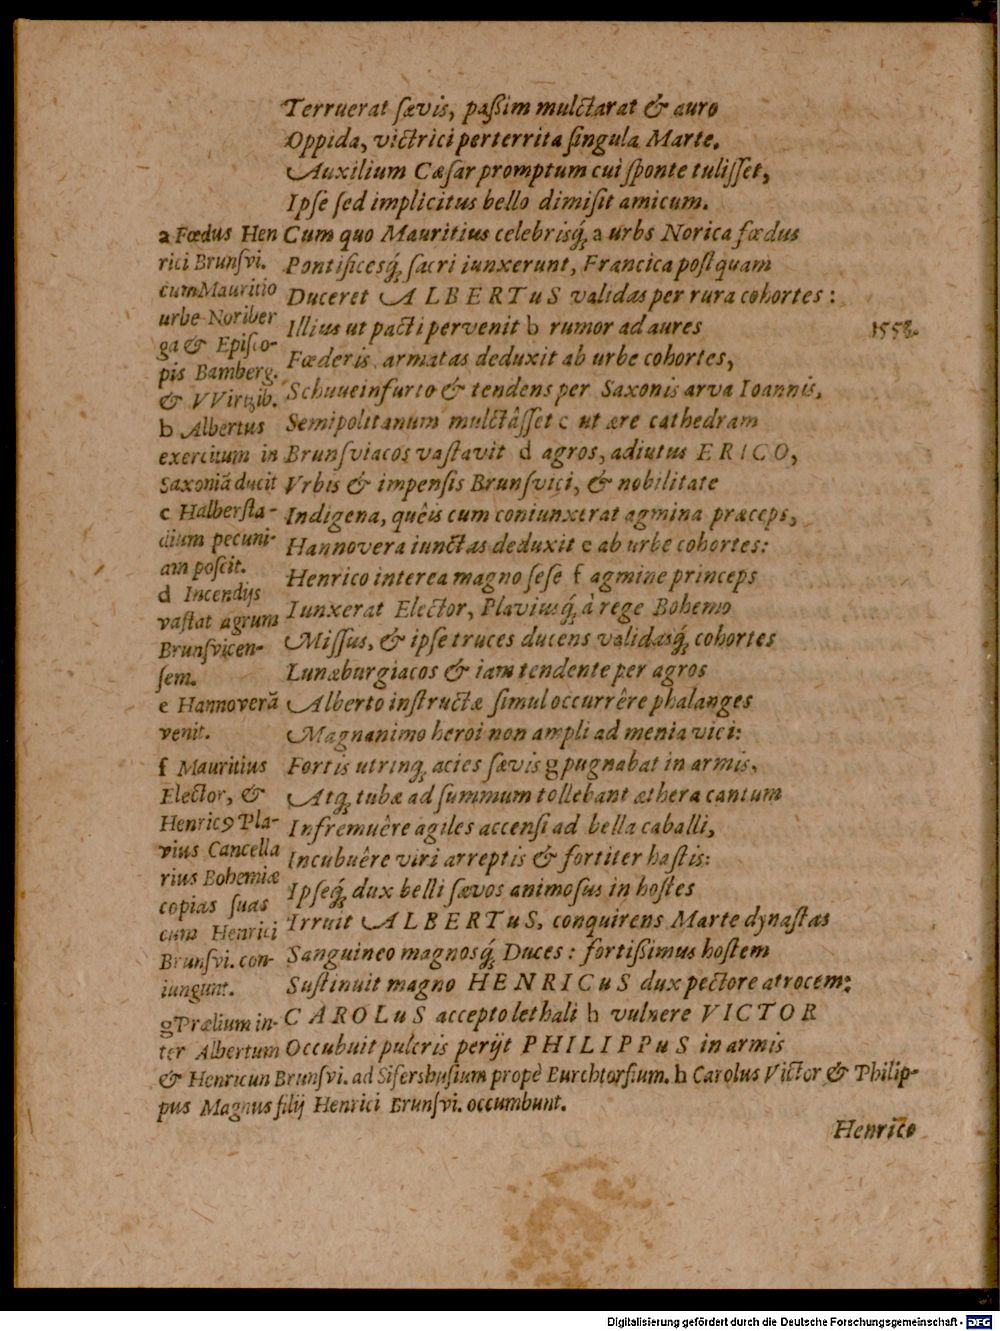 Terruerat sævis, paßim mulctarat & auro
Oppida, victrici perterrita singula Marte.
Auxilium Cæsar promptum cui sponte tulisset,
Ipse sed implicitus bello dimisit amicum.
Cum quo Mauritius celebrisq́; a urbs Norica fœdus
Pontificesq́; sacri iunxerunt, Francica postquam
Duceret ALBERTuS validas per rura cohortes:
Illius ut pacti pervenit b rumor ad aures
Fœderis, armatas deduxit ab urbe cohortes,
Schuueinfurto & tendens per Saxonis arva Ioannis,
Semipolitanum mulctâsset c ut ære cathedram
Brunsviacos vastavit d agros, adiutus ERICO,
Vrbis & impensis Brunsvici, & nobilitate
Indigena, quêis cum coniunxerat agmina præceps,
Hannovera iunctas deduxit e ab urbe cohortes:
Henrico interea magno sese f agmine princeps
Iunxerat Elector, Plaviusq́; à rege Bohemo
Missus, & ipse truces ducens validasq́; cohortes
Lunæburgiacos & iam tendente per agros
Alberto instructæ simul occurrêre phalanges
Magnanimo heroi non ampli ad menia vici:
Fortis utrinq; acies sævis g pugnabat in armis,
Atq; tubæ ad summum tollebant æthera cantum
Infremuêre agiles accensi ad bella caballi,
Incubuêre viri arreptis & fortiter hastis:
Ipseq́; dux belli sævos animosus in hostes
Irruit ALBERTuS, conquirens Marte dynastas
Sanguineo magnosq́; Duces: fortißimus hostem
Sustinuit magno HENRICuS dux pectore atrocem;
CAROLuS accepto lethali h vulnere VICTOR
Occubuit pulcris perijt PHILIPPuS in armis
1553.
a Fœdus Hen
rici Brunsvi.
cum Mauritio
urbe Noriber
ga & Episco-
pis Bamberg.
& VVirtzib.
b Albertus
exercitum in
Saxoniã ducit
c Halbersta-
dium pecuni-
am poscit.
d Incendijs
vastat agrum
Brunsvicen-
sem.
e Hannoverã
venit.
f Mauritius
Elector, &
Henricꝰ Pla-
vius Cancella
rius Bohemiæ
copias suas
cum Henrici
Brunsvi. con-
iungunt.
g Prælium in-
ter Albertum
& Henricun Brunsvi. ad Sifershusium propè Burchtorfium. h Carolus Victor & Philip-
pus Magnus filij Henrici Brunsvi. occumbunt.
Henrico
Digitalisierung gefördert durch die Deutsche Forschungsgemeinschaft - DFG